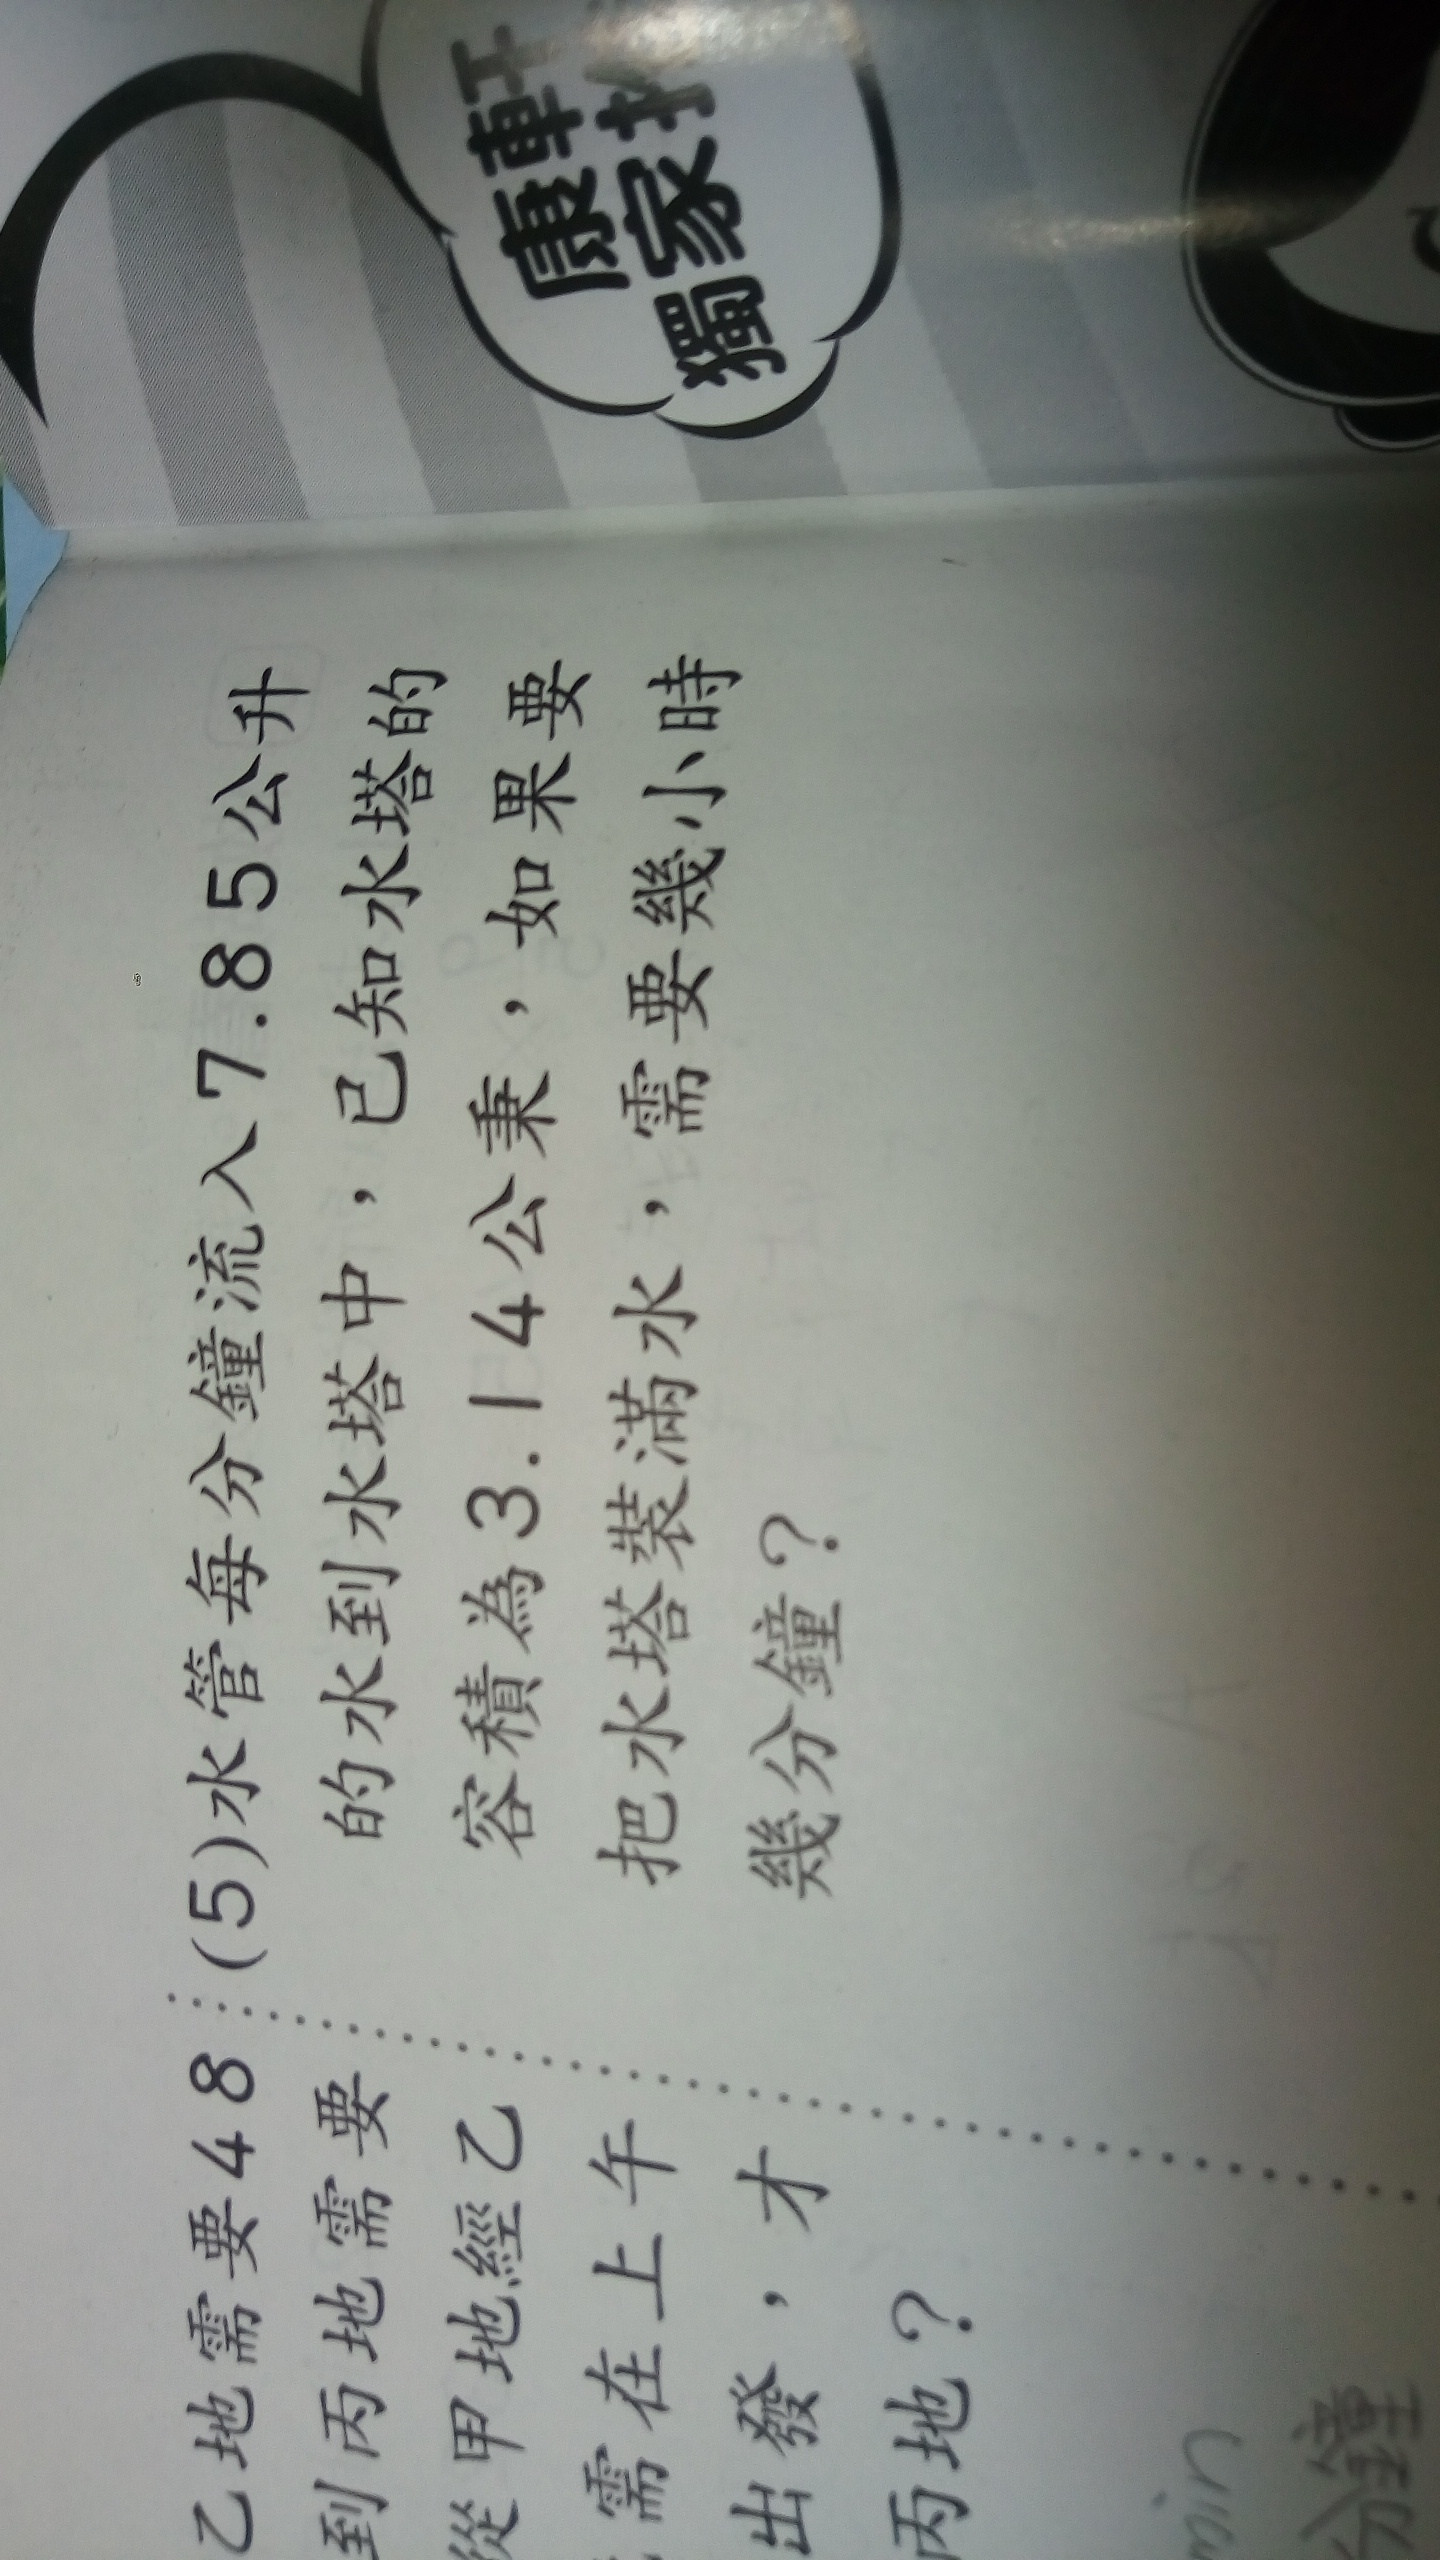 康軒
獨家
(5)水管每分鐘流入7.85公升
的水到水塔中，已知水塔的
容積為3.14公秉，如果要
把水塔裝滿水，需要幾小時
幾分鐘？
乙地需要48
到丙地需要
從甲地經乙
需在上午
出發，才
丙地？